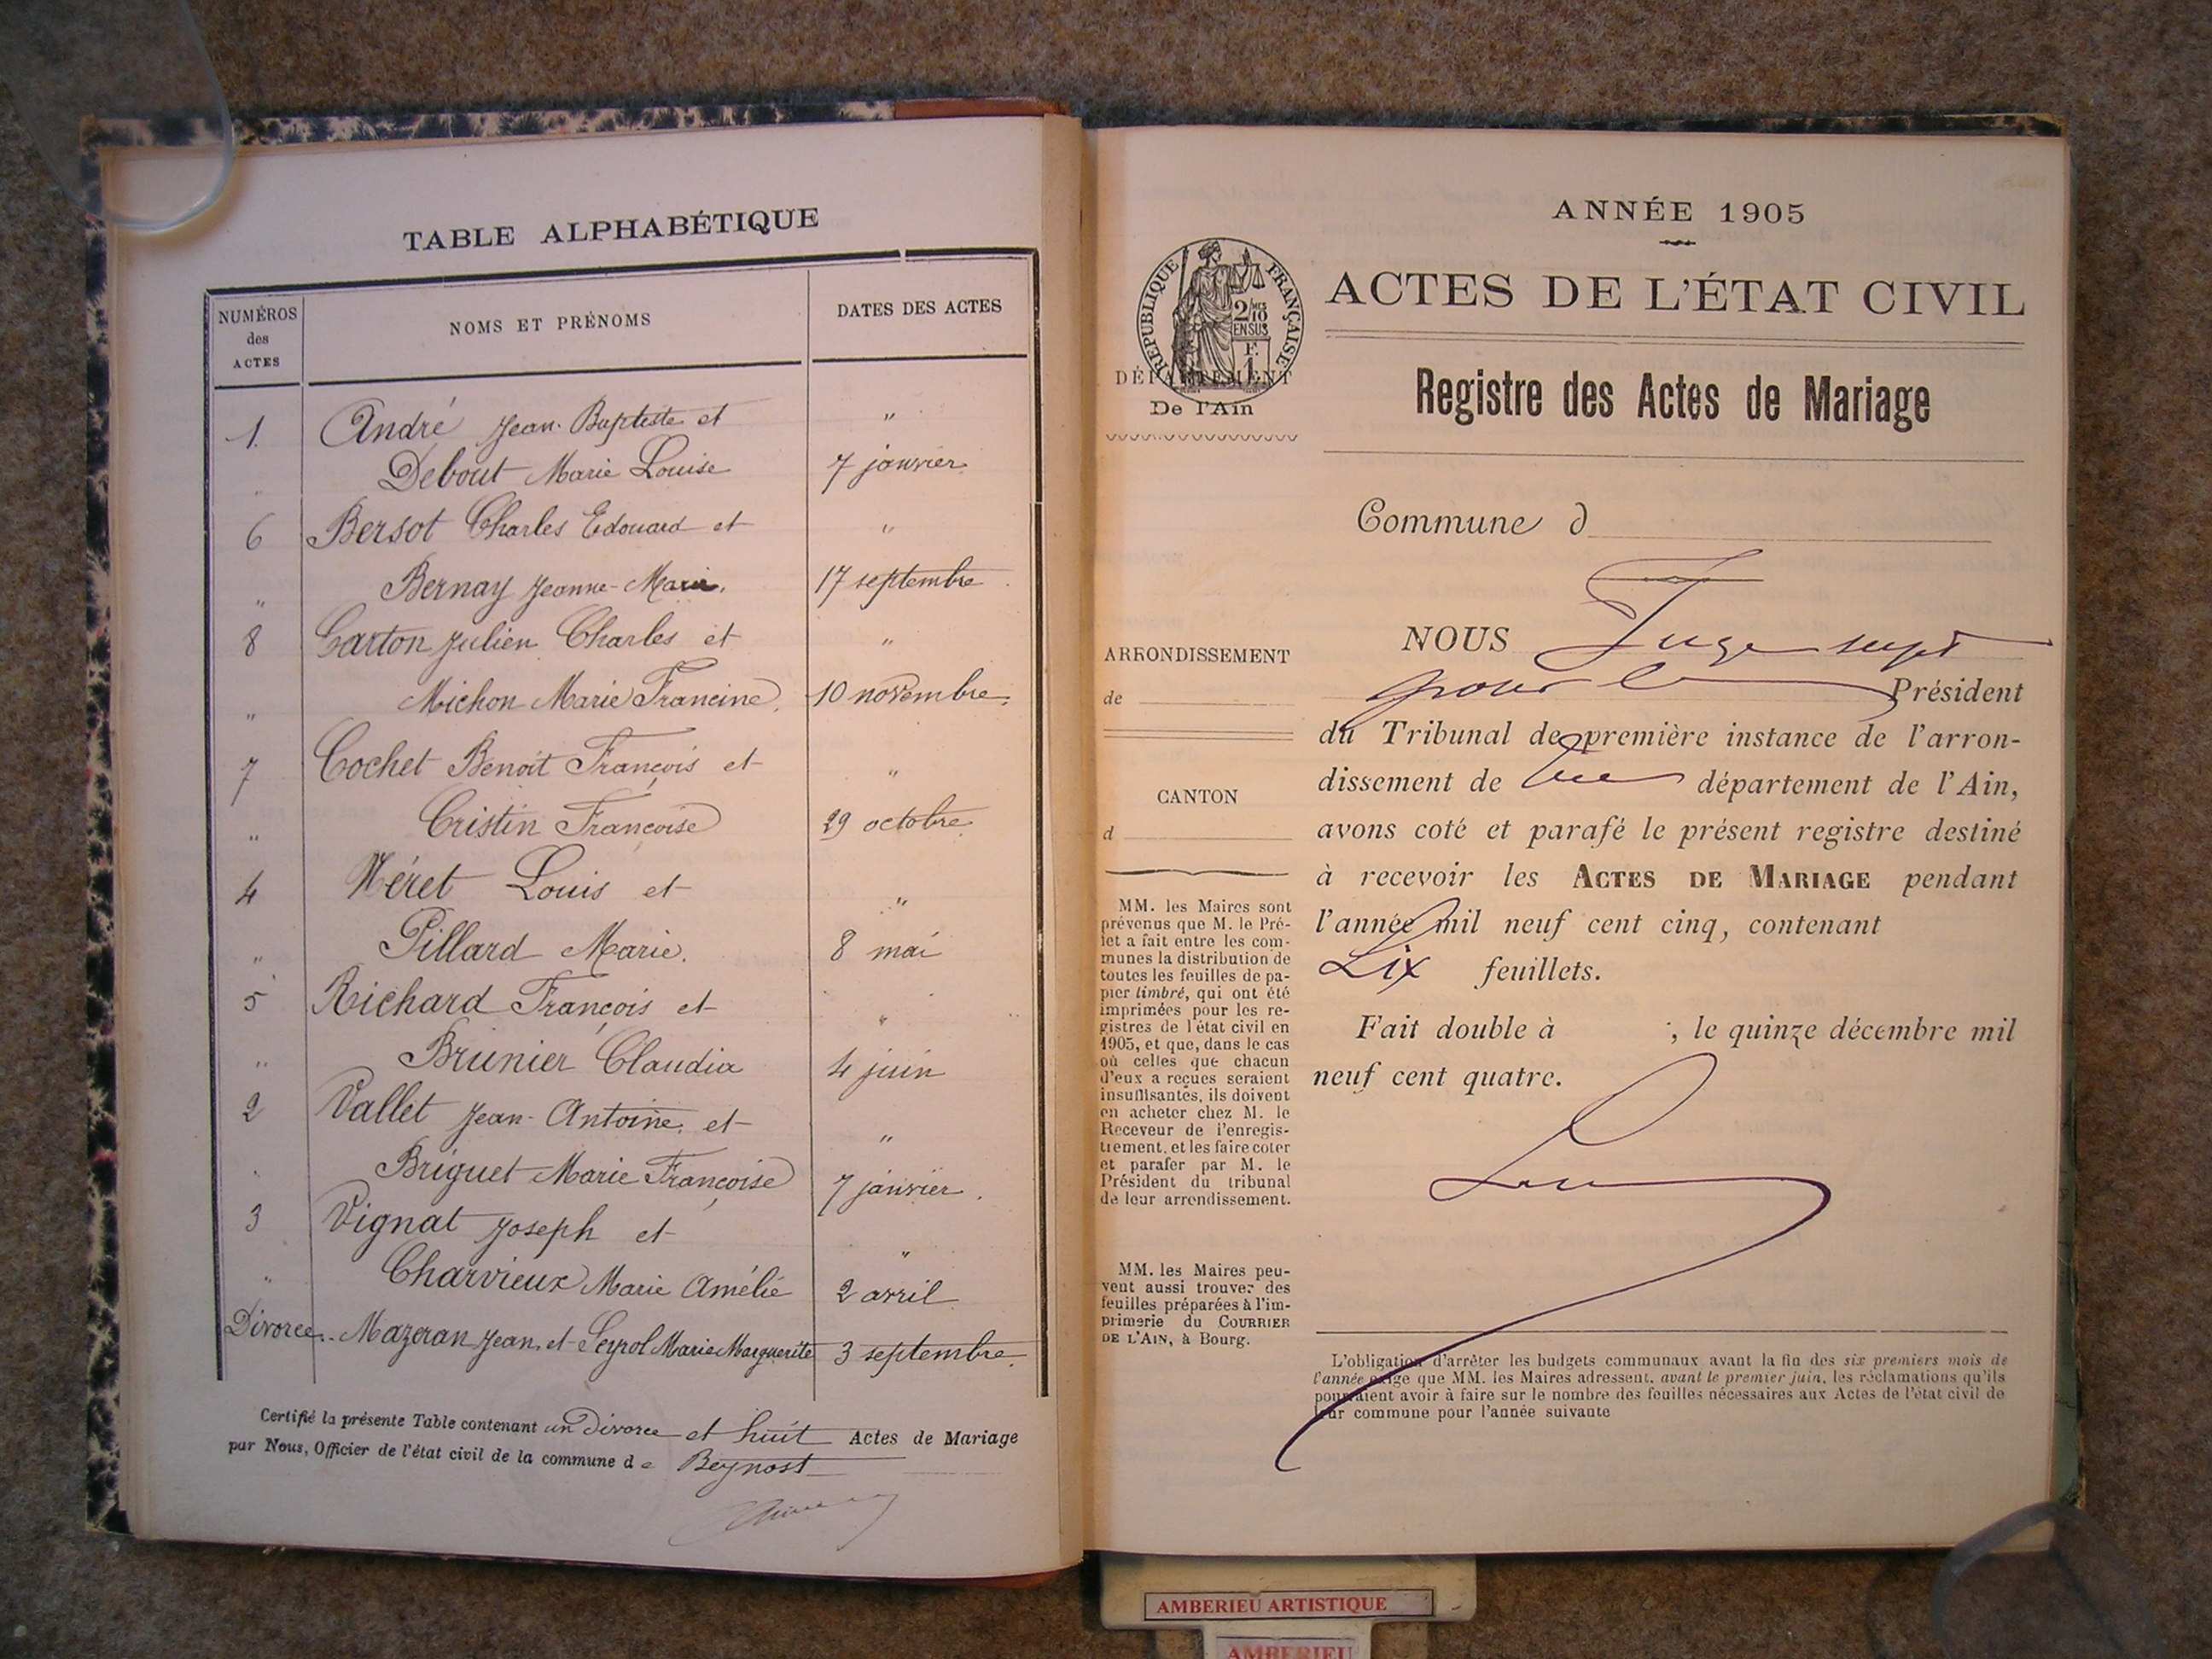 TABLE ALPHABÉTIQUE
NUMÉROS des ACTES
NOMS ET PRÉNOMS
DATES DES ACTES
1. André Jean-Baptiste et "
" Debout Marie Louise 7 janvier
6 Bersot Charles Edouard et "
" Bernay Jeanne-Marie. 17 septembre
8 Carton Julien Charles et "
" Michon Marie Francine. 10 novembre.
7 Cochet Benoit François et "
" Cristin Françoise 29 octobre
4 Néret Louis et "
" Pillard Marie. 8 mai
5 Richard François et "
" Brunier Claudia 4 juin
2 Vallet Jean-Antoine et "
" Briguet Marie Françoise 7 janvier.
3 Vignat Joseph et "
" Charvieux Marie Amélie 2 avril
Divorce. Mazeran Jean et Seyrol Marie Marguerite 3 septembre.
Certifié la présente Table contenant un Divorce et huit Actes de Mariage
par Nous, Officier de l'état civil de la commune de Beynost
ANNÉE 1905
RÉPUBLIQUE FRANÇAISE
2/10 EN SUS
F. 1
DÉPARTEMENT
De l'Ain
ACTES DE L'ÉTAT CIVIL
Registre des Actes de Mariage
Commune d
ARRONDISSEMENT
de
CANTON
d
MM. les Maires sont
prévenus que M. le Pré-
fet a fait entre les com-
munes la distribution de
toutes les feuilles de pa-
pier timbré, qui ont été
imprimées pour les re-
gistres de l'état civil en
1905, et que, dans le cas
où celles que chacun
d'eux a reçues seraient
insuffisantes, ils doivent
en acheter chez M. le
Receveur de l'enregis-
trement, et les faire coter
et parafer par M. le
Président du tribunal
de leur arrondissement.
MM. les Maires peu-
vent aussi trouver des
feuilles préparées à l'im-
primerie du COURRIER
DE L'AIN, à Bourg.
NOUS Juge supt
pour le Président
du Tribunal de première instance de l'arron-
dissement de département de l'Ain,
avons coté et parafé le présent registre destiné
à recevoir les ACTES DE MARIAGE pendant
l'année mil neuf cent cinq, contenant
Six feuillets.
Fait double à , le quinze décembre mil
neuf cent quatre.
L'obligation d'arrêter les budgets communaux avant la fin des six premiers mois de
l'année exige que MM. les Maires adressent, avant le premier juin, les réclamations qu'ils
pourraient avoir à faire sur le nombre des feuilles nécessaires aux Actes de l'état civil de
leur commune pour l'année suivante
AMBERIEU ARTISTIQUE
AMBERIEU